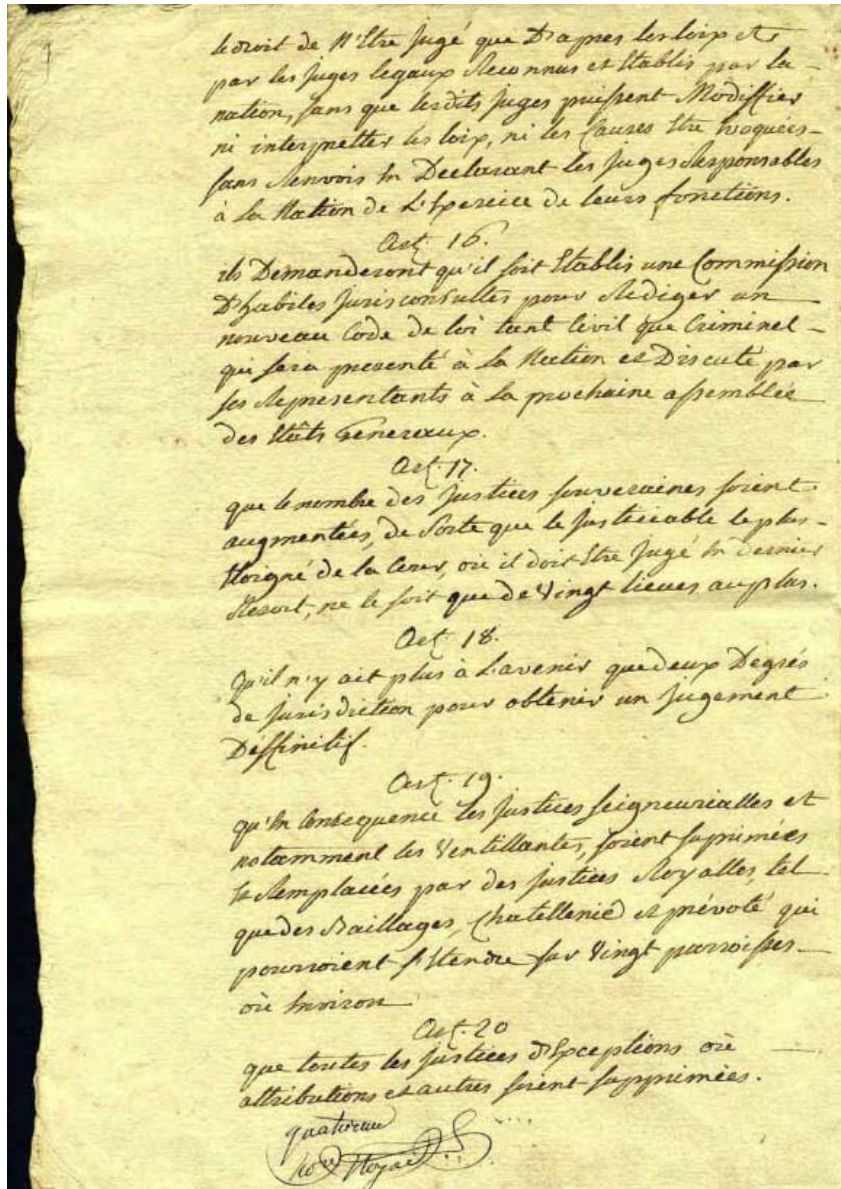 le droit de n'Etre Jugé que D'apres les loix et
par les Juges legaux Reconnus et Etablis par la
nation, sans que lesdits Juges puissent Modiffier
ni interpretter les loix, ni les Causes Etre Evoquées
sans Renvois En Declarant les Juges Responsables
à la Nation de L'Exercice de leurs fonctions.
Art. 16.
ils Demanderont qu'il soit Etablis une Commission
D'habiles Jurisconsultes pour Rediger un
nouveau Code de loi tant Civil que Criminel
qui sera presenté à la Nation et Discuté par
ses Representants à la prochaine assemblée
des Etâts Genereaux.
Art. 17.
que le nombre des Justices souveraines soient
augmentées, de Sorte que le Justiciable le plus
Eloigné de la Cour, où il doit Etre Jugé En dernier
Resort, ne le soit que de Vingt lieues au plus.
Art. 18.
Qu'il n'y ait plus à L'avenir que deux Degrés
de Jurisdiction pour obtenir un Jugement
Deffinitif.
Art. 19.
qu'En Consequence les Justices seigneurialles et
notamment les Ventillantes, soient suprimées
Et Remplacées par des Justices Royalles, tel
que des Baillages, Chatellenie et prévoté qui
pourroient s'Etendre sur Vingt parroisses
où Environ
Art. 20
que toutes les Justices d'Exceptions où
attributions et autres soient supprimées.